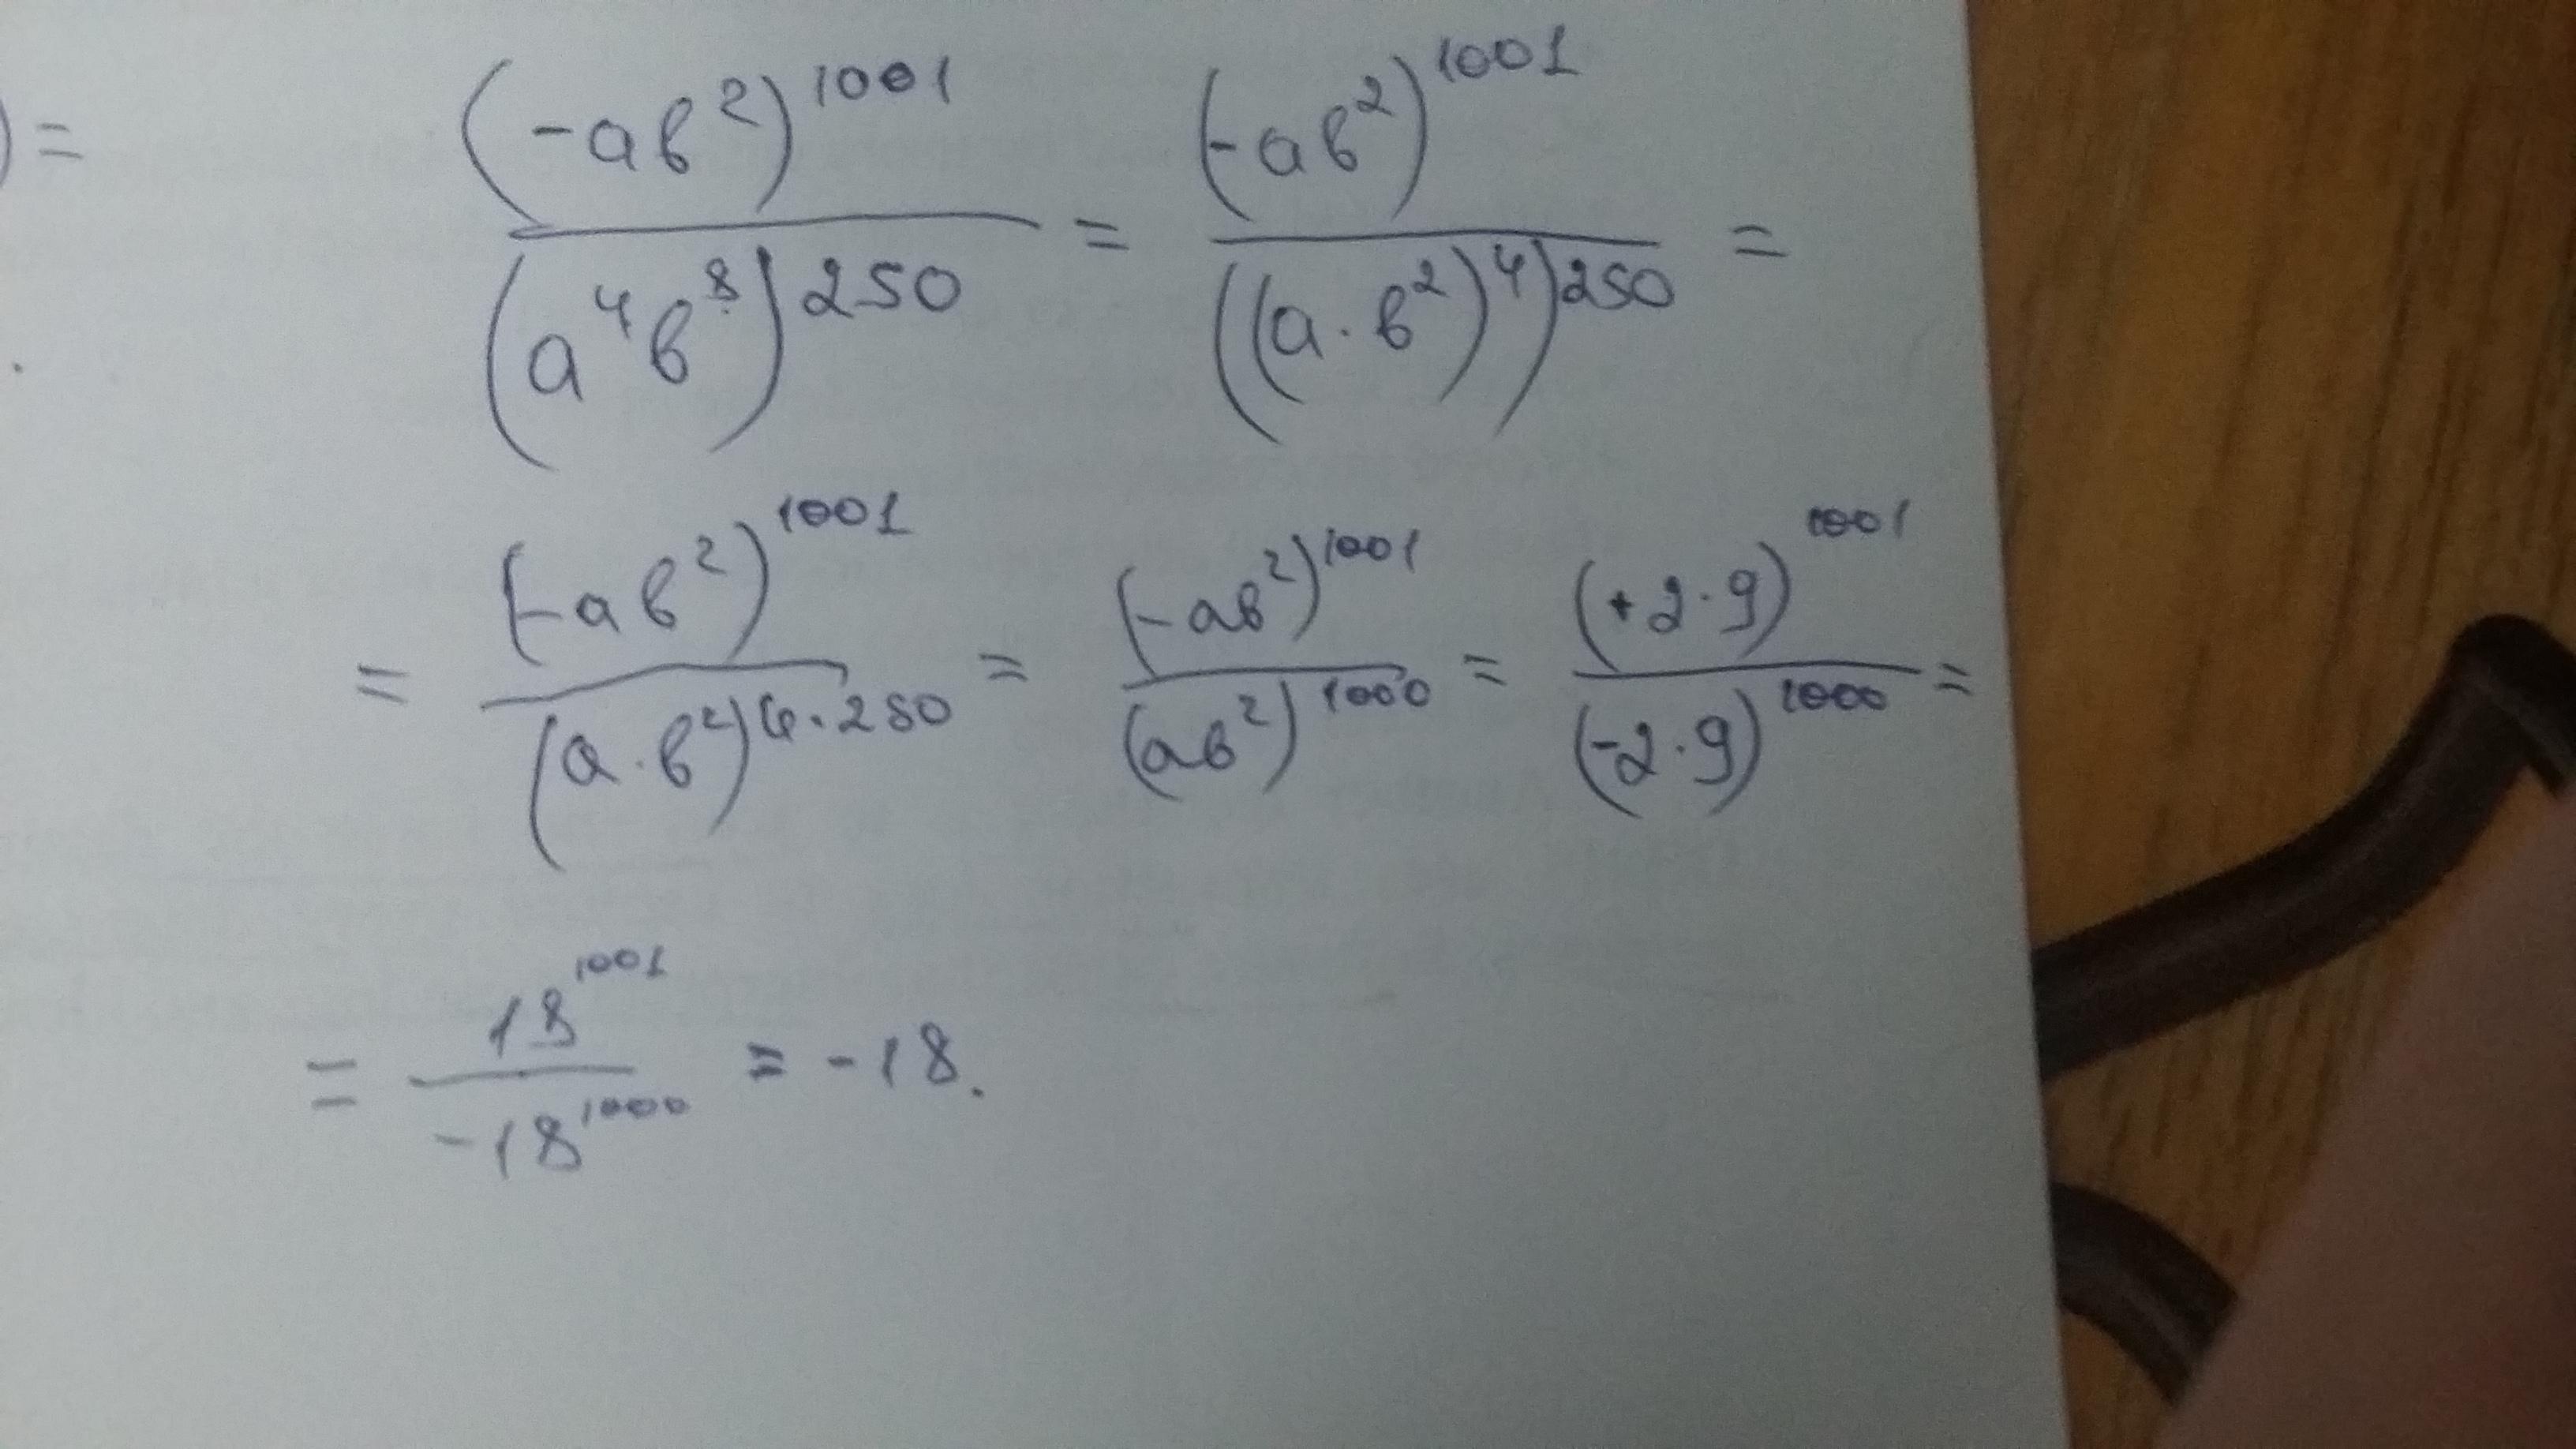 ) = (-aв²)¹⁰⁰¹ / (a⁴в⁸)²⁵⁰ = (-aв²)¹⁰⁰¹ / ((a·в²)⁴)²⁵⁰ =
= (-aв²)¹⁰⁰¹ / (a·в²)⁴·²⁵⁰ = (-aв²)¹⁰⁰¹ / (aв²)¹⁰⁰⁰ = (+2·9)¹⁰⁰¹ / (-2·9)¹⁰⁰⁰ =
= 18¹⁰⁰¹ / -18¹⁰⁰⁰ = -18.